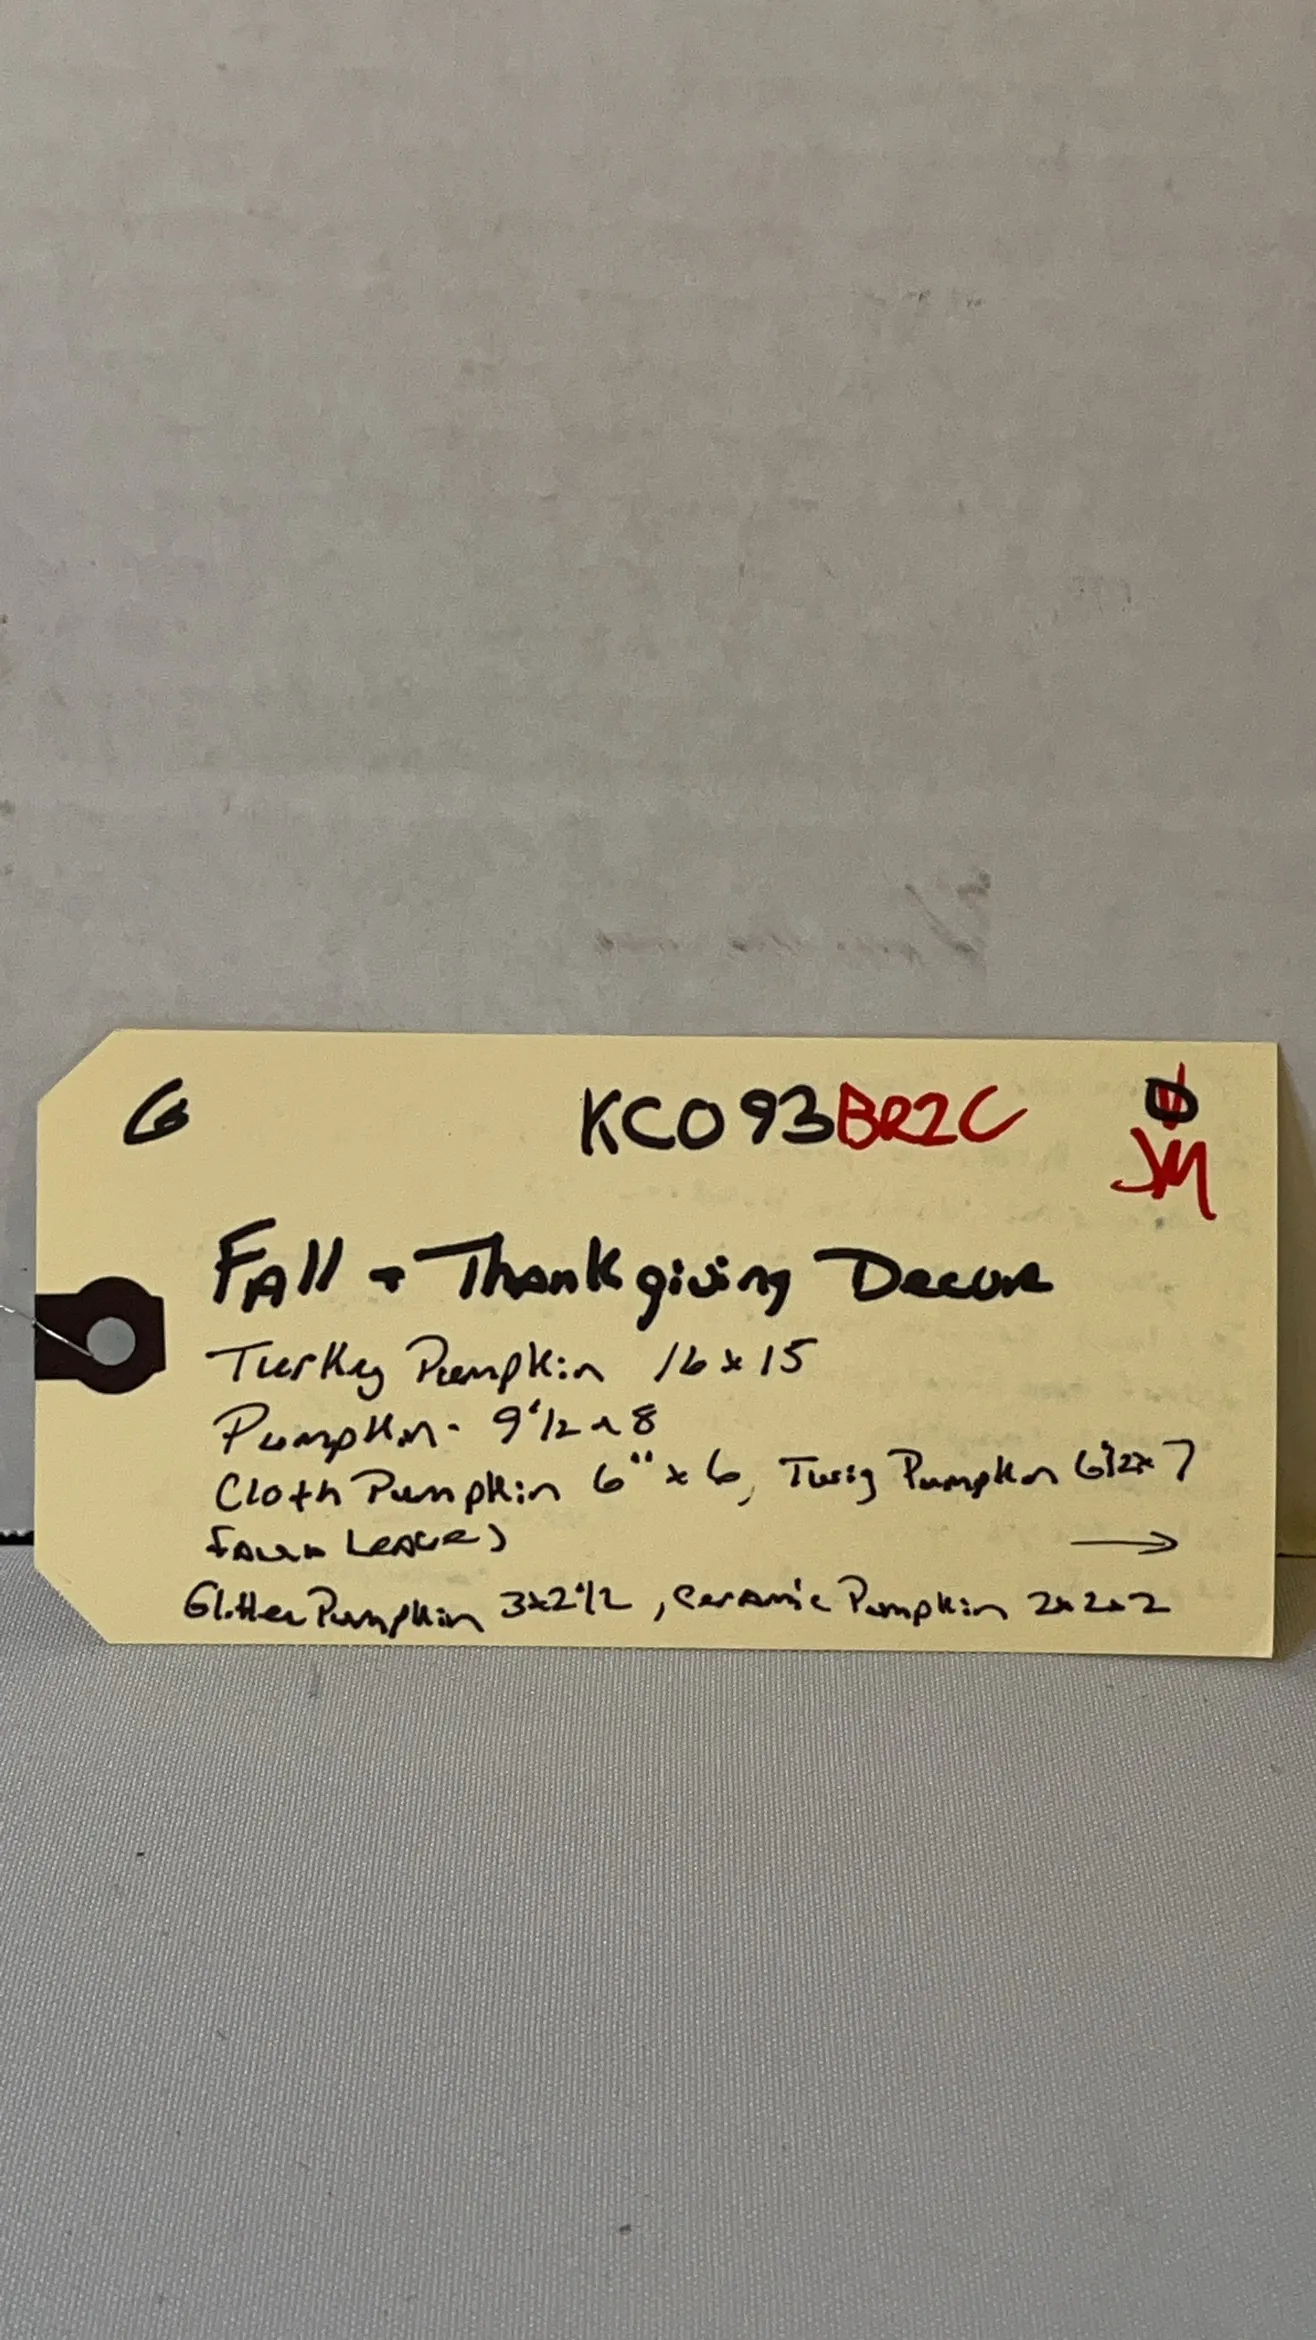 G KC093BR2C
JM
Fall + Thankgiving Decor
Turkey Pumpkin 16 x 15
Pumpkin - 9 1/2 x 8
Cloth Pumpkin 6" x 6, Twig Pumpkin 6 1/2 x 7
Leaves →
Glitter Pumpkin 3x2 1/2, Ceramic Pumpkin 2x2x2